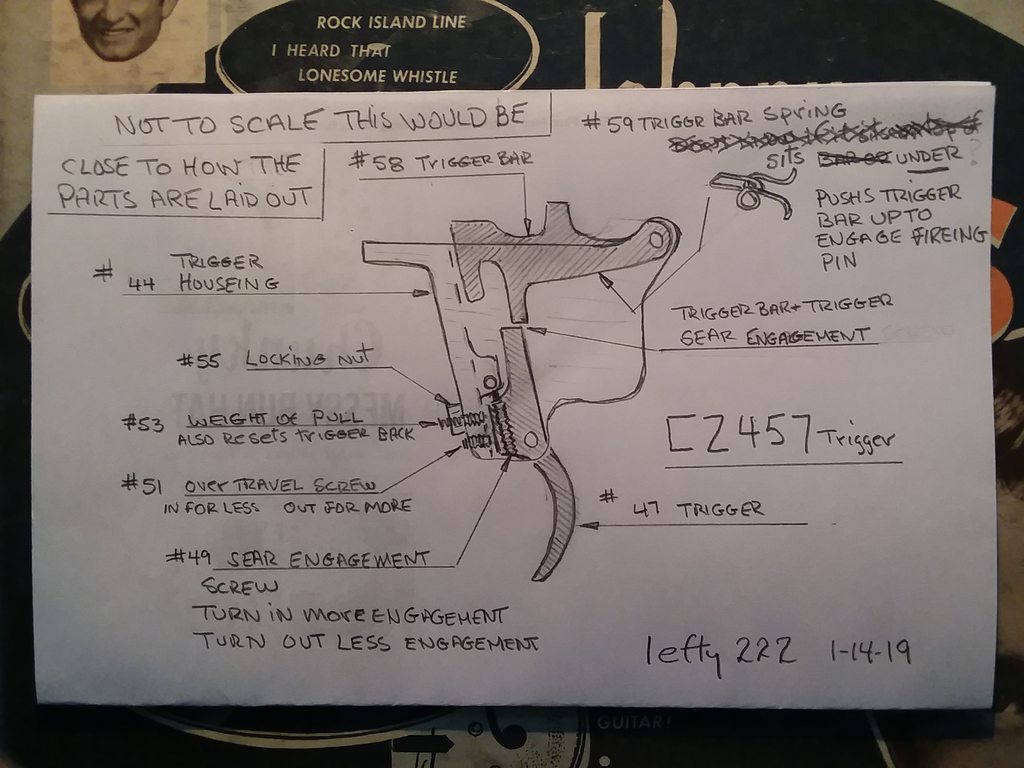 ROCK ISLAND LINE
I HEARD THAT
LONESOME WHISTLE
NOT TO SCALE THIS WOULD BE
CLOSE TO HOW THE
PARTS ARE LAID OUT
#58 TRIGGER BAR
#59 TRIGGR BAR SPRING
SITS UNDER
PUSHS TRIGGER
BAR UP TO
ENGAGE FIREING
PIN
# 44 TRIGGER
HOUSEING
TRIGGER BAR + TRIGGER
SEAR ENGAGEMENT
#55 LOCKING NUT
#53 WEIGHT OF PULL
ALSO RESETS TRIGGER BACK
CZ457 Trigger
#51 OVER TRAVEL SCREW
IN FOR LESS OUT FOR MORE
# 47 TRIGGER
#49 SEAR ENGAGEMENT
SCREW
TURN IN MORE ENGAGEMENT
TURN OUT LESS ENGAGEMENT
lefty 222 1-14-19
GUITAR!